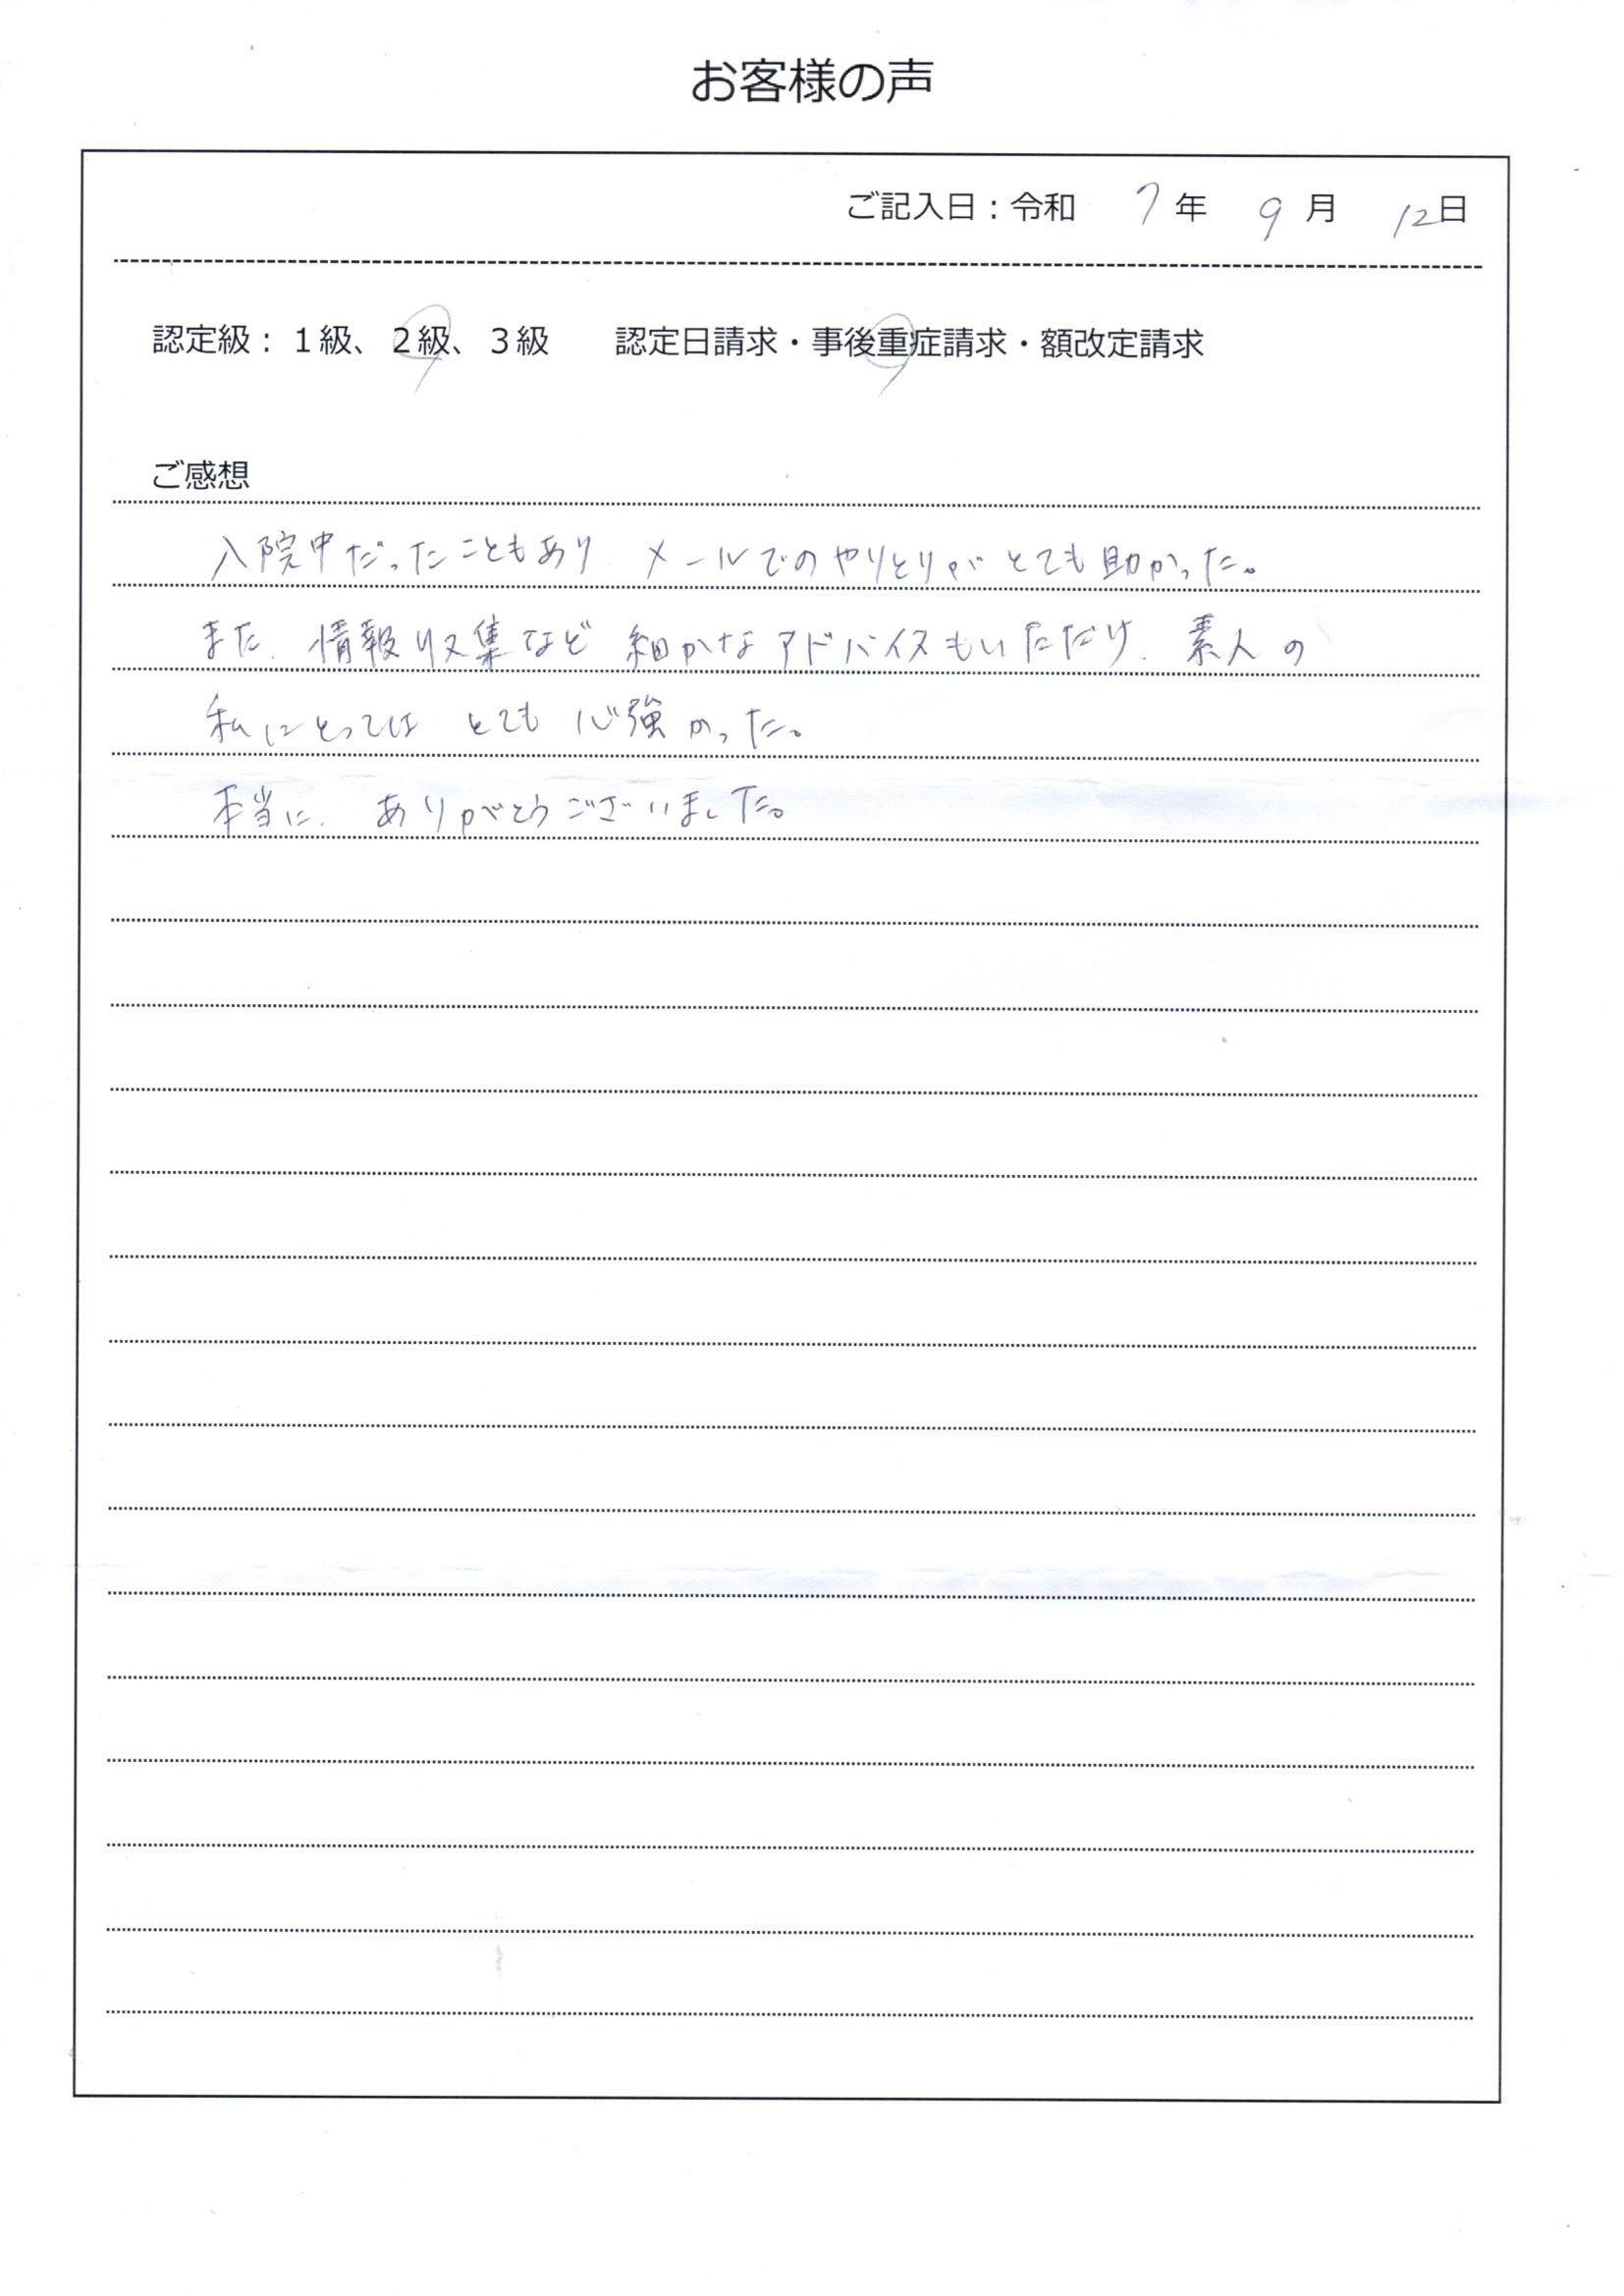 お客様の声
ご記入日：令和 7年 9月 12日
認定級：１級、２級、３級　　認定日請求・事後重症請求・額改定請求
ご感想
入院中だったこともあり、メールでのやりとりがとても助かった。
また、情報収集など細かなアドバイスもいただけ、素人の
私にとっては とても 心強かった。
本当に、ありがとうございました。